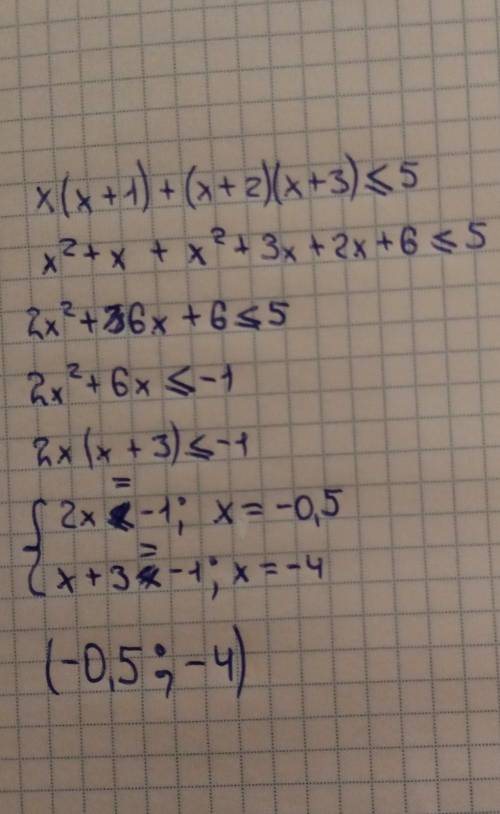 x(x+1)+(x+2)(x+3)≤5
x²+x + x²+3x+2x+6≤5
2x²+6x+6≤5
2x²+6x≤-1
2x(x+3)≤-1
{ 2x = -1; x=-0,5
x+3 = -1; x=-4
(-0,5; -4)